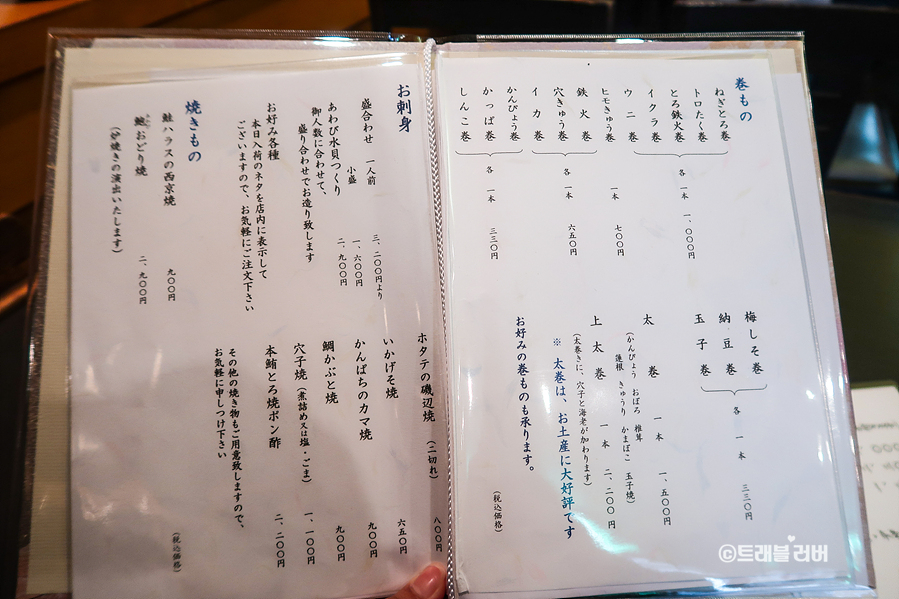 巻もの
ねぎとろ巻
トロたく巻
とろ鉄火巻
イクラ巻
ウニ巻
各一本 一、〇〇〇円
ヒモきゅう巻 一本 七〇〇円
鉄火巻
穴きゅう巻
イカ巻
各一本 六五〇円
かんぴょう巻
かっぱ巻
しんこ巻
各一本 三三〇円
梅しそ巻
納豆巻
玉子巻
各一本 三三〇円
太巻 一本 一、五〇〇円
(かんぴょう おぼろ 椎茸
蓮根 きゅうり かまぼこ 玉子焼)
上太巻 一本 二、二〇〇円
(太巻きに、穴子と海老が加わります)
※ 太巻は、お土産に大好評です
お好みの巻ものも承ります。
(税込価格)
お刺身
盛合わせ 一人前 三、二〇〇円より
小盛 一、六〇〇円
あわび水貝つくり 二、九〇〇円
御人数に合わせて、
盛り合わせでお造り致します
お好み各種
本日入荷のネタを店内に表示して
ございますので、お気軽にご注文下さい
焼きもの
鮭ハラスの西京焼 九〇〇円
おどり焼 二、九〇〇円
(炉焼きの演出いたします)
ホタテの磯辺焼 (二切れ) 八〇〇円
いかげそ焼 六五〇円
かんぱちのカマ焼 九〇〇円
鯛かぶと焼 九〇〇円
穴子焼 (煮詰め又は塩・ごま) 一、一〇〇円
本鮪とろ焼ポン酢 二、二〇〇円
その他の焼き物もご用意致しますので、
お気軽に申しつけ下さい
(税込価格)
©트래블러버